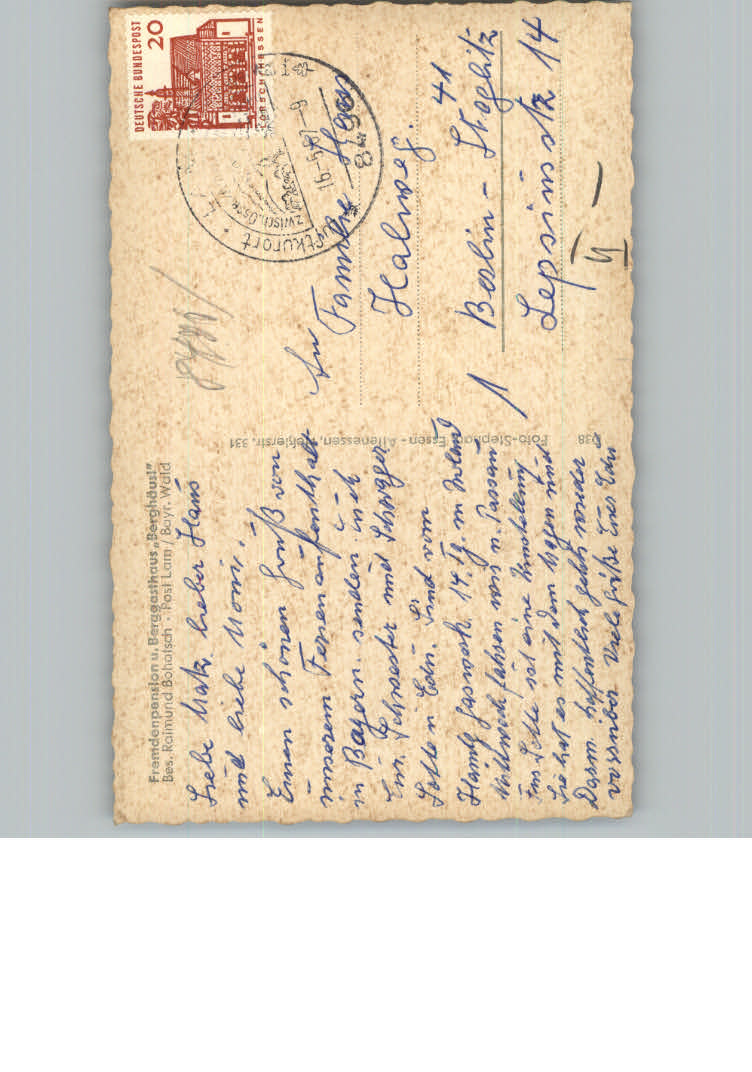 Fremdenpension u. Berggasthaus „Berghäusl"
Bes. Raimund Bohotsch · Post Lam / Bayr. Wald
Liebe Matz, lieber Hans
und liebe Moni.
Einen schönen Gruß von
unserem Ferienaufenthalt
in Bayern senden Euch
Eur. Schwester und Schwager
Lotte u. Edu. Sind vom
Hambg Gaswerk 14. Tg. in Urlaub
Mittwoch fahren wir n. Passau
Für Lotte ist eine Umstellung
Sie hat es mit dem Magen und
Darm hoffentlich geht's wieder
vorrüber Viele Grüße Eures Edu
DEUTSCHE BUNDESPOST
20
LORSCH/HESSEN
Luftkurort
zwisch. Osser
16.-5.67-9
8496
An
Familie
Haliweg.
1
41
Berlin - Steglitz
Lepsiusstr 14
II
Foto-Stephan, Essen - Altenessen, 331